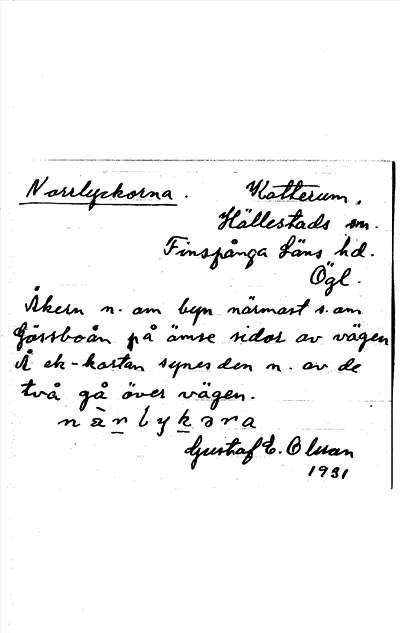 Norrlyckorna. Katterum,
Hällestads sn.
Finspånga läns hd.
Ögl.
Åkern n. om byn närmast s. om
på ämse sidor av vägen
Å ek-kartan synes den n. av de
två gå över vägen.
Gustaf E. Olsson
1931